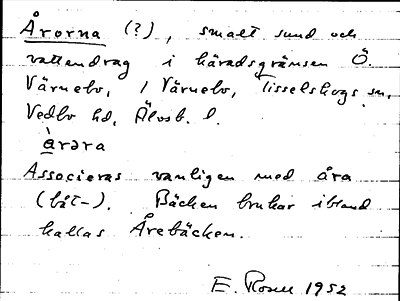 Årorna (?), smalt sund och
vattendrag i häradsgränsen Ö.
Värnebo, / Värnebo, Tisselskogs sn,
Vedbo hd, Älvsb. l.
àrəra
Associeras vanligen med åra
(båt-). Bäcken brukar ibland
kallas Årebäcken.
E. Rosell 1952